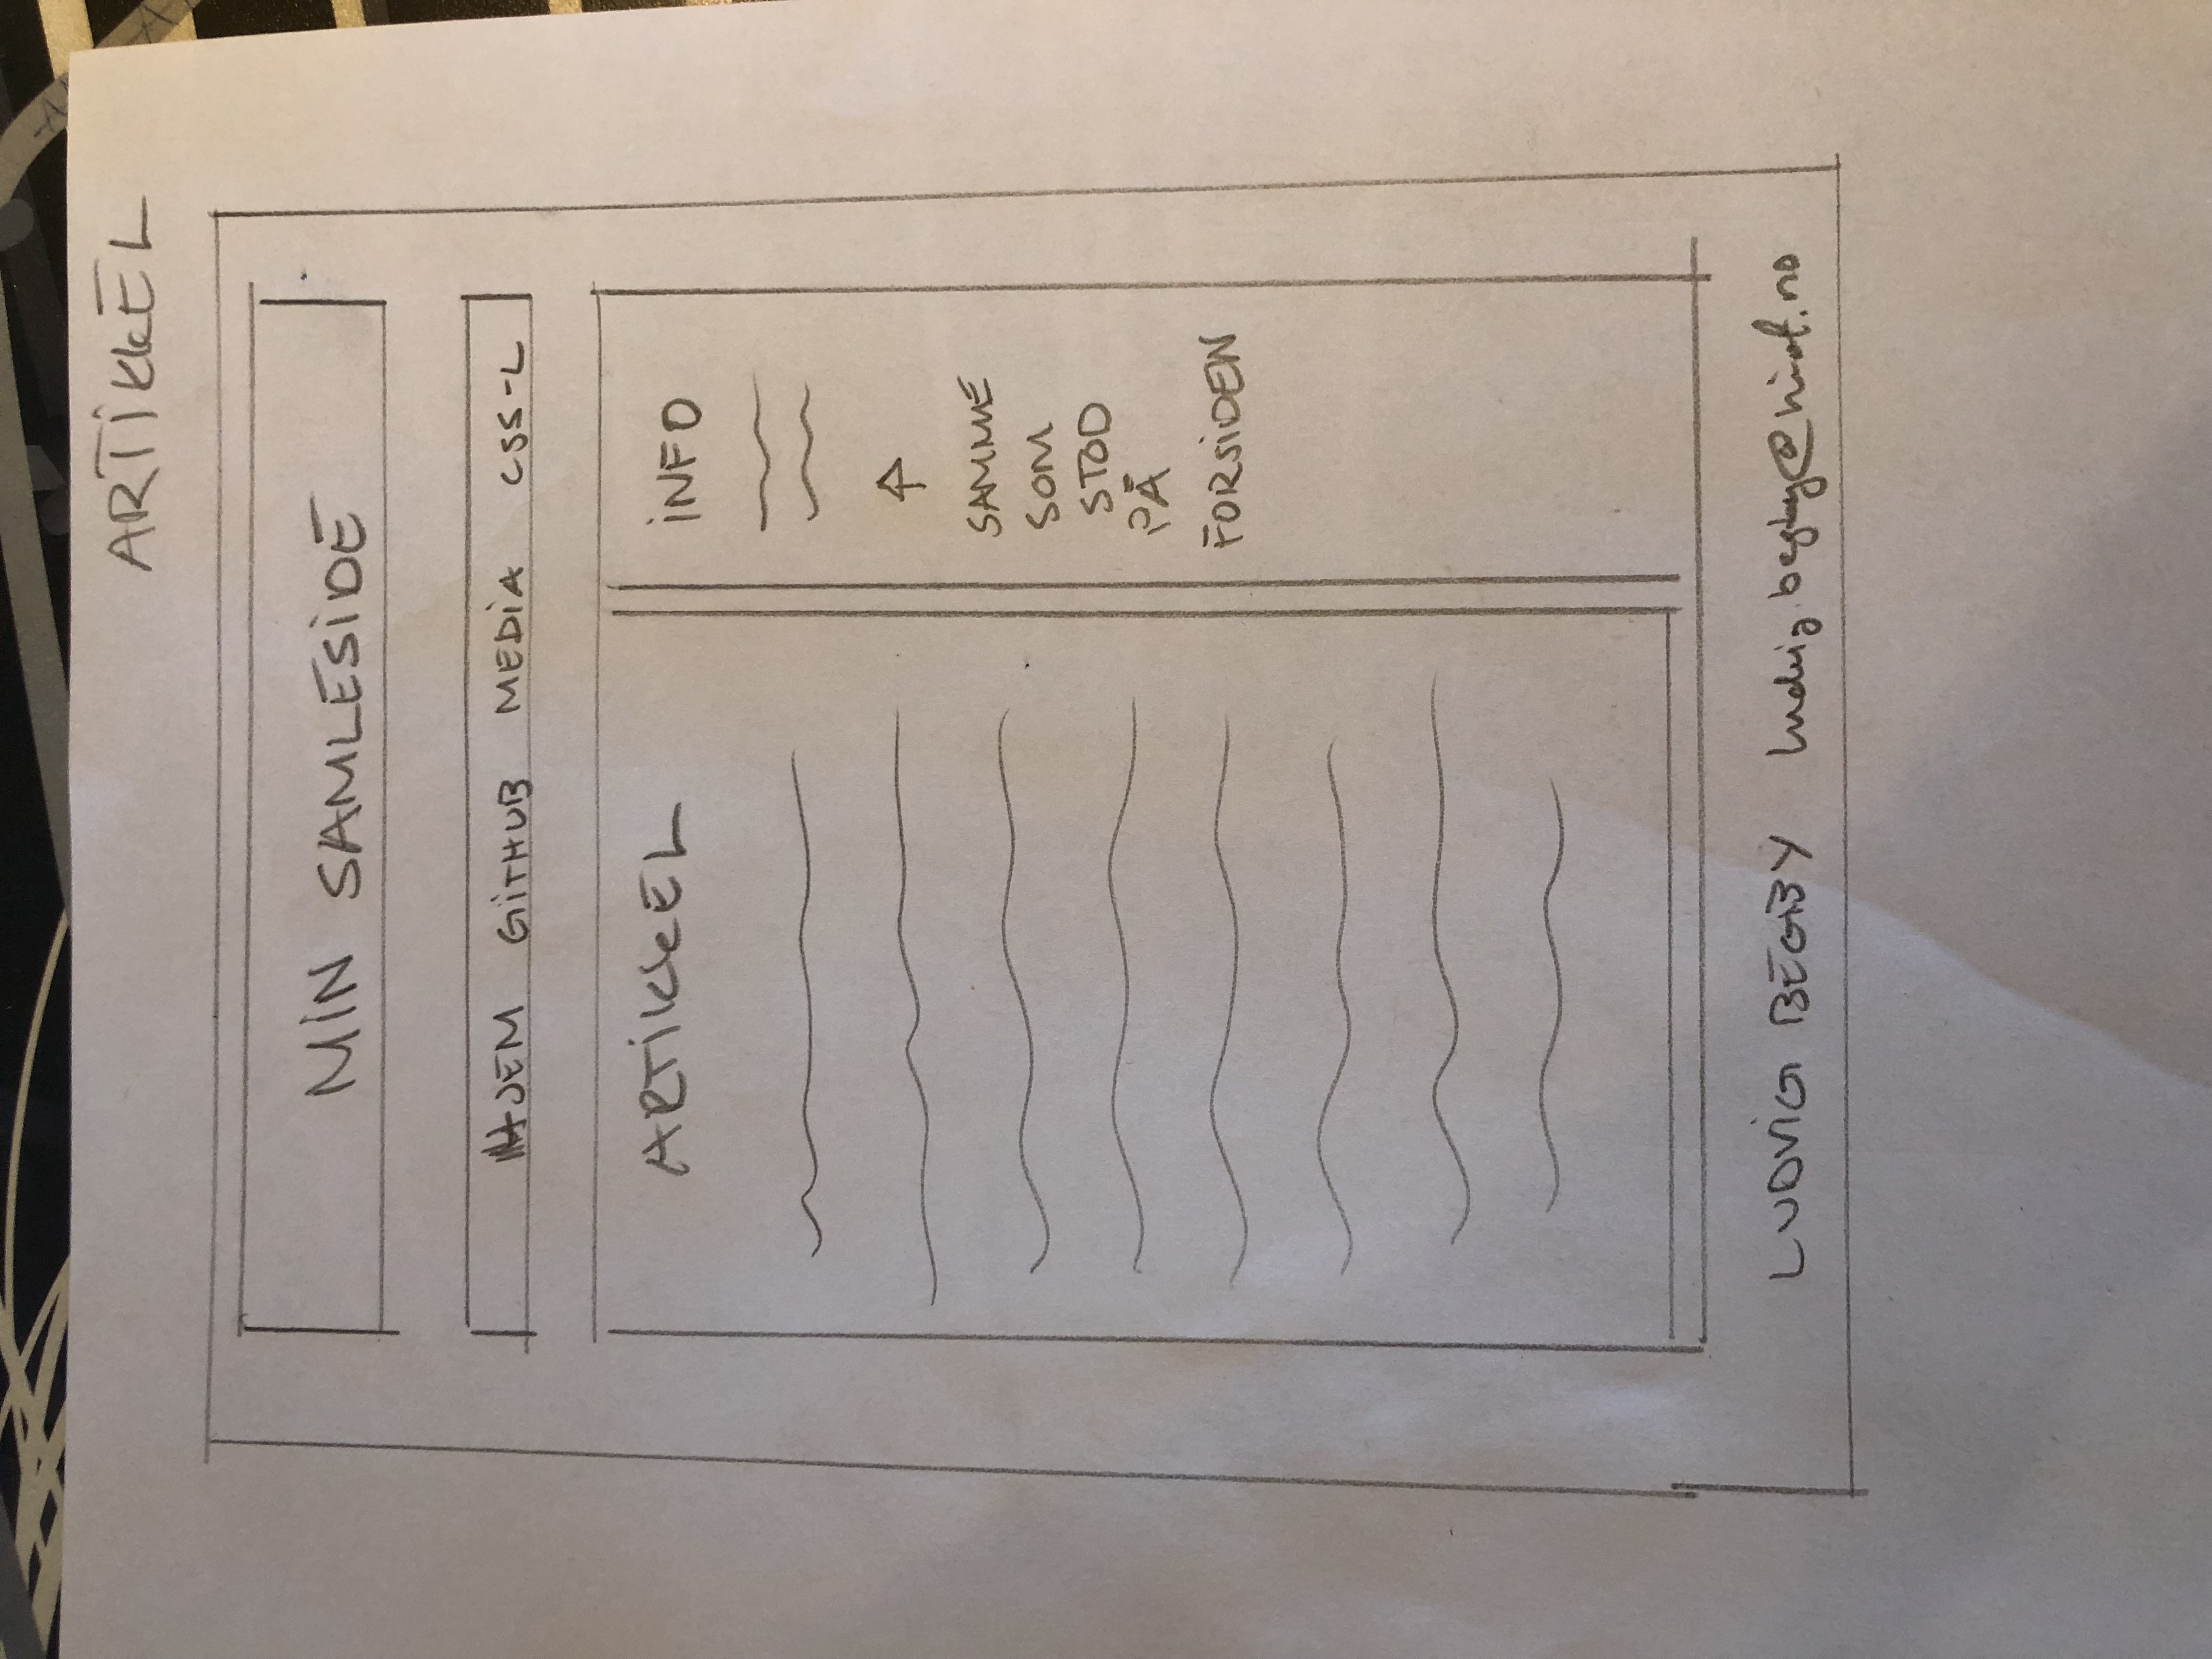 ARTIKKEL
MIN SAMLESIDE
HJEM GITHUB MEDIA CSS-L
ARTIKKEL
INFO
SAMME
SOM
STOD
PÅ
FORSIDEN
LUDVIG BEGBY ludvig.begby@hiof.no